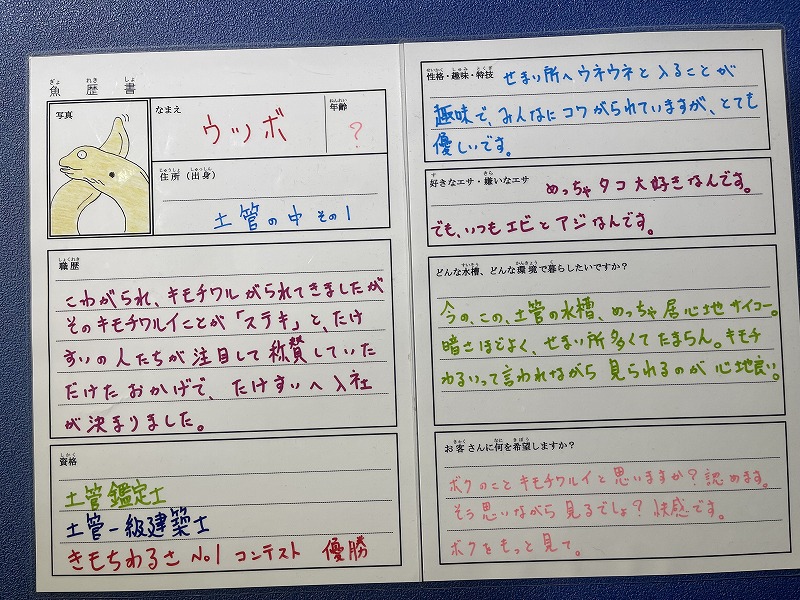 魚歴書
ぎょ れき しょ
写真
なまえ
ウツボ
ねんれい
年齢
?
じゅうしょ しゅっしん
住所(出身)
土管の中 その1
しょくれき
職歴
こわがられ、キモチワルがられてきましたが
そのキモチワルイことが「ステキ」と、たけ
すいの人たちが注目して称賛していた
だけたおかげで、たけすいへ入社
が決まりました。
しかく
資格
土管鑑定士
土管一級建築士
きもちわるさ No1 コンテスト 優勝
せいかく しゅみ とくぎ
性格・趣味・特技
せまい所へウネウネと入ることが
趣味で、みんなにコワがられていますが、とても
優しいです。
す きら
好きなエサ・嫌いなエサ
めっちゃタコ大好きなんです。
でも、いつもエビとアジなんです。
すいそう かんきょう く
どんな水槽、どんな環境で暮らしたいですか?
今の、この、土管の水槽、めっちゃ居心地サイコー。
暗さほどよく、せまい所多くてたまらん。キモチ
わるいって言われながら見られるのが心地良い。
きゃく なに きぼう
お客さんに何を希望しますか?
ボクのことキモチワルイと思いますか?認めます。
そう思いながら見るでしょ?快感です。
ボクをもっと見て。